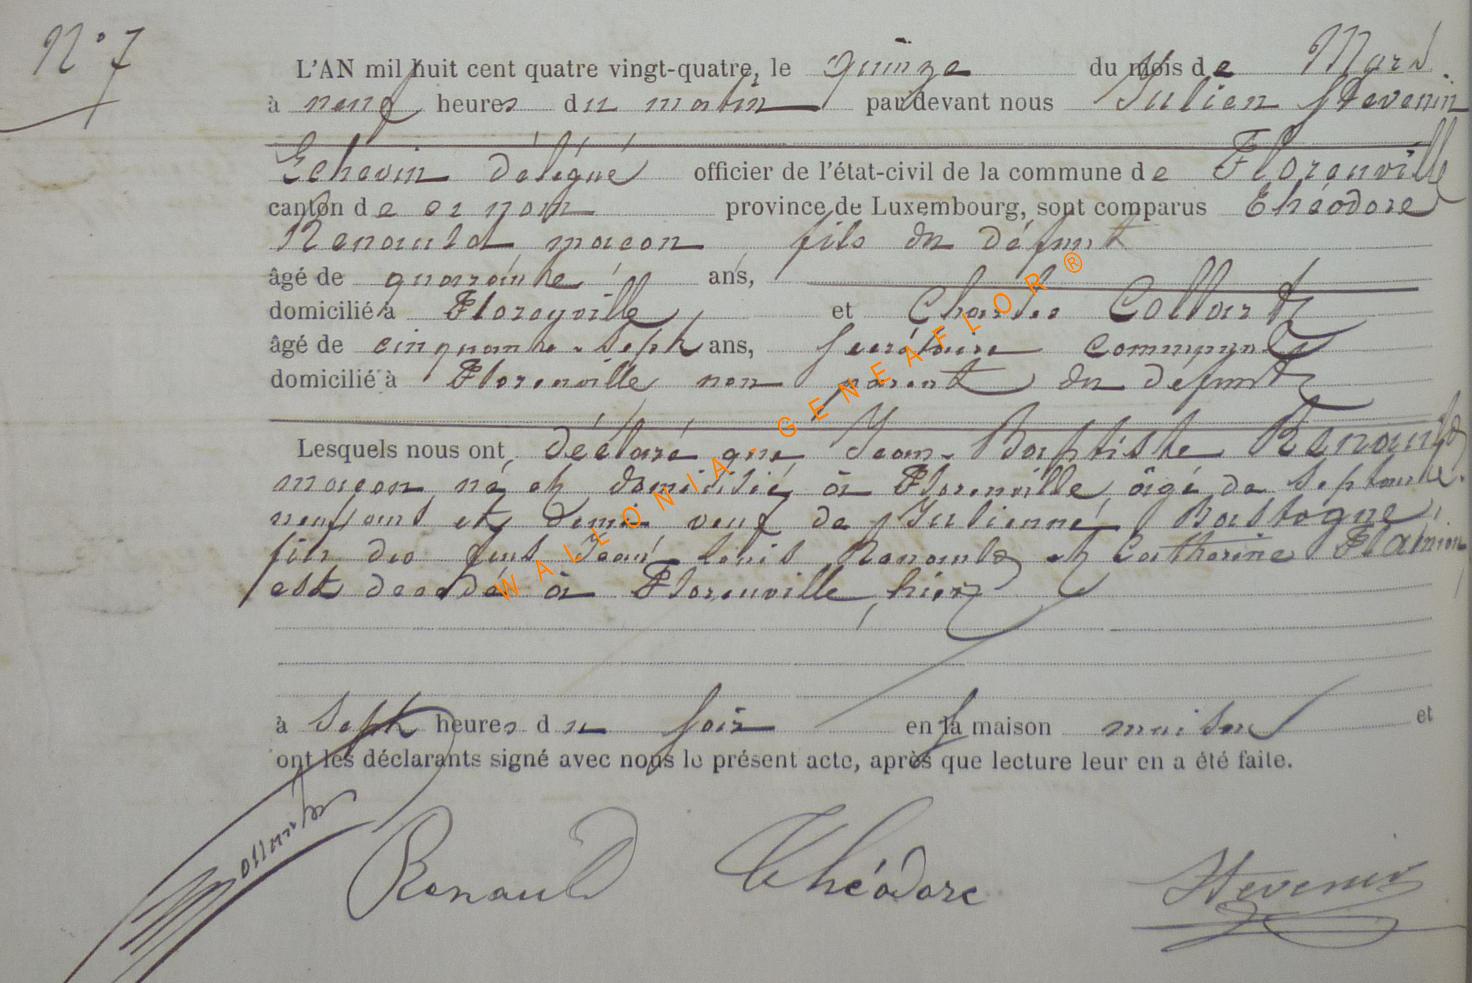 N° 7
L'AN mil huit cent quatre vingt-quatre, le quinze du mois de Mars
à neuf heures du matin par devant nous Julien Stevenin
Echevin délégué officier de l'état-civil de la commune de Florenville
canton de province de Luxembourg, sont comparus Théodore
Renauld maçon fils du défunt
âgé de quarante ans,
domicilié à Florenville et Charles Collard
âgé de cinquante-sept ans, secrétaire communal
domicilié à Florenville non parent du défunt
Lesquels nous ont déclaré que Jean-Baptiste Renauld
maçon, né et domicilié à Florenville, âgé de septante
neuf ans et demi veuf de Julienne Bastogne,
fils des feus Jean Louis Renauld et Catherine
est décédé à Florenville, hier
à sept heures du soir en sa maison maison et
ont les déclarants signé avec nous le présent acte, après que lecture leur en a été faite.
Collard Renauld Théodore Stevenin
WALLONIA GENEAFLOR ®